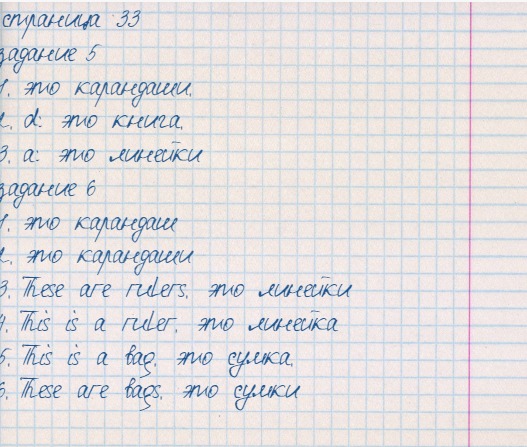 страница 33
задание 5
1. это карандаши.
2. d: это книга.
3. a: это линейки
задание 6
1. это карандаш
2. это карандаши
3. These are rulers. это линейки
4. This is a ruler. это линейка
5. This is a bag. это сумка.
6. These are bags. это сумки